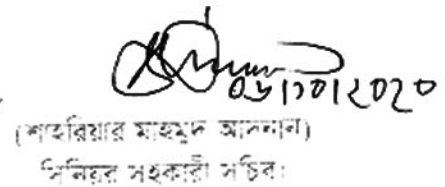 ০৬।১০।২০২০
(শাহরিয়ার মাহমুদ আদনান)
সিনিয়র সহকারী সচিব।